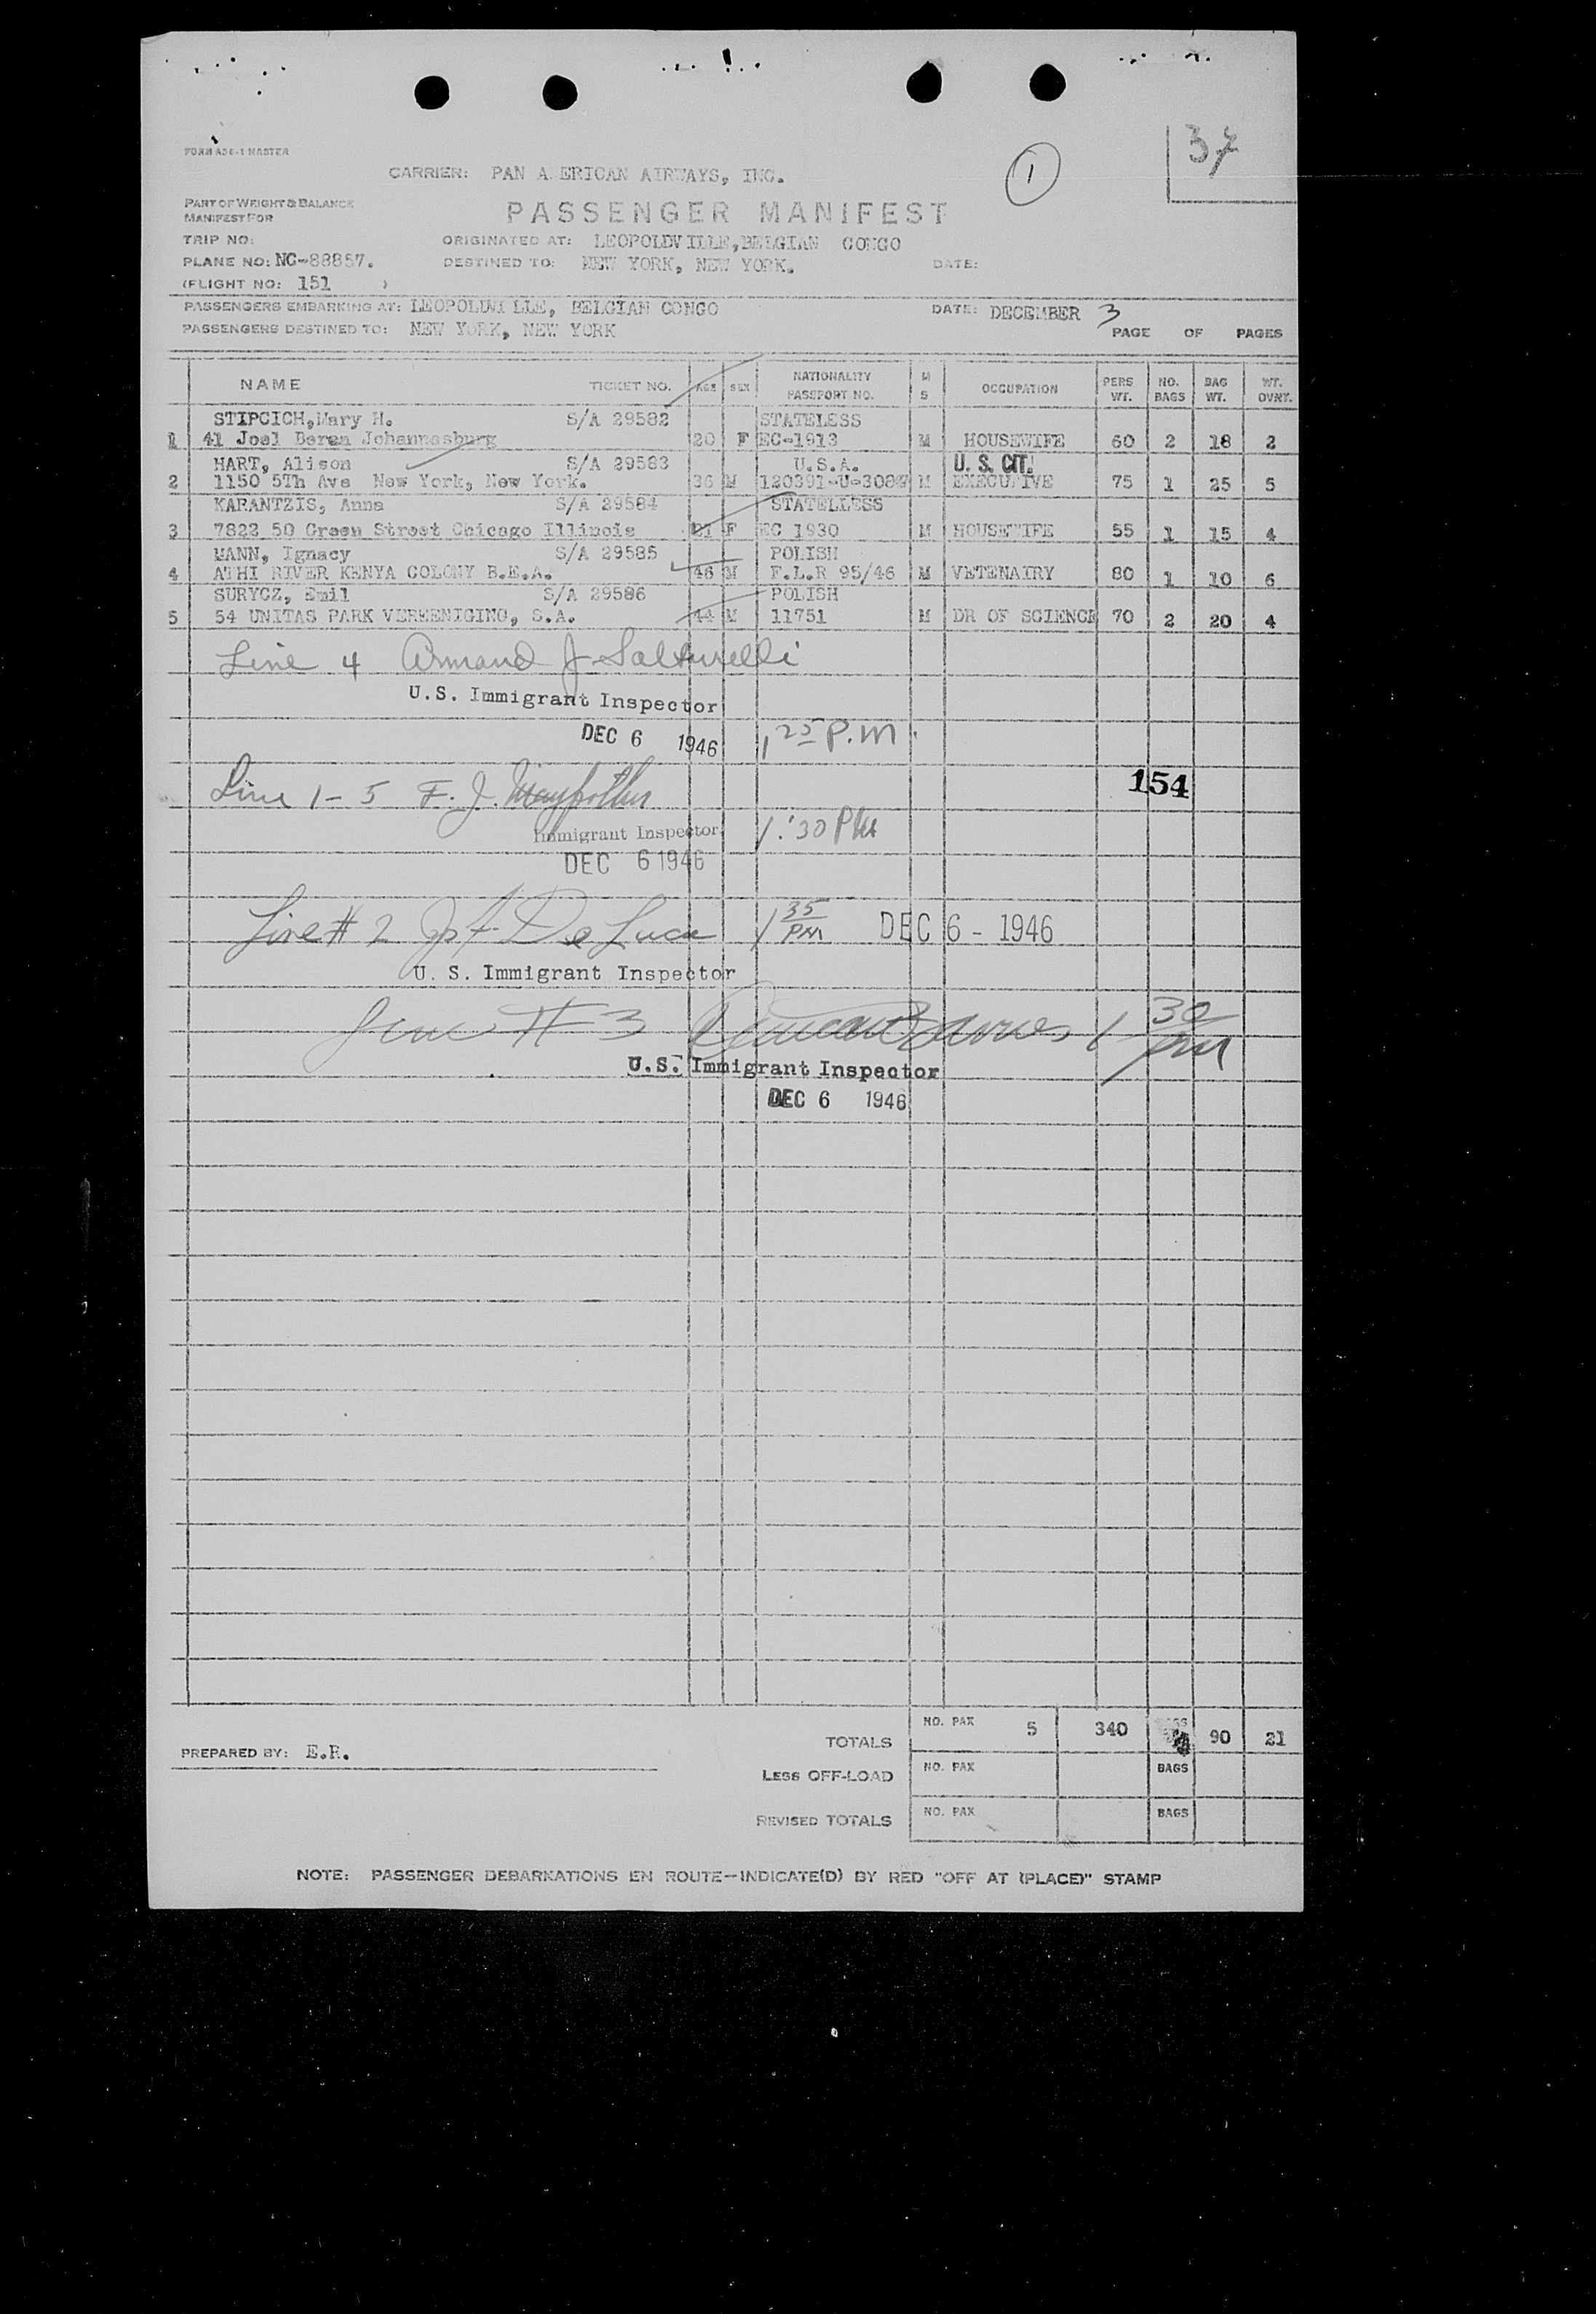 37
1
FORM ADC-1 MASTER
CARRIER: PAN A ERICAN AIRWAYS, INC.
PART OF WEIGHT & BALANCE
MANIFEST FOR
PASSENGER MANIFEST
TRIP NO:
ORIGINATED AT: LEOPOLDVILLE, BELGIAN CONGO
PLANE NO: NC-88857.
DESTINED TO: NEW YORK, NEW YORK.
DATE:
(FLIGHT NO: 151 )
PASSENGERS EMBARKING AT: LEOPOLDVILLE, BELGIAN CONGO
DATE: DECEMBER 3
PASSENGERS DESTINED TO: NEW YORK, NEW YORK
PAGE OF PAGES
NAME TICKET NO. AGE SEX NATIONALITY PASSPORT NO. M S OCCUPATION PERS WT. NO. BAGS BAG WT. WT. OVNT.
STIPCICH, Mary H. S/A 29582 STATELESS
1 41 Joel Beren Johannesburg 20 F EC-1913 M HOUSEWIFE 60 2 18 2
HART, Alison S/A 29583 U.S.A. U. S. CIT.
2 1150 5Th Ave New York, New York. 36 M 120391-U-308 M EXECUTIVE 75 1 25 5
KARANTZIS, Anna S/A 29584 STATELLESS
3 7822 50 Green Street Chicago Illinois 21 F EC 1930 M HOUSEWIFE 55 1 15 4
MANN, Ignacy S/A 29585 POLISH
4 ATHI RIVER KENYA COLONY B.E.A. 46 M F.L.R 95/46 M VETENAIRY 80 1 10 6
SURYCZ, Emil S/A 29586 POLISH
5 54 UNITAS PARK VEREENIGING, S.A. 44 M 11751 M DR OF SCIENCE 70 2 20 4
Line 4 Armand J.
U.S. Immigrant Inspector
DEC 6 1946 1 25 P.M.
154
Line 1-5 F. J.
Immigrant Inspector 1:30 PM
DEC 6 1946
Line # 2 De Luca 1 35 PM DEC 6 - 1946
U. S. Immigrant Inspector
Line # 3 1 30 PM
U.S. Immigrant Inspector
DEC 6 1946
TOTALS NO. PAX 5 340 90 21
PREPARED BY: E.R.
LESS OFF-LOAD NO. PAX BAGS
REVISED TOTALS NO. PAX BAGS
NOTE: PASSENGER DEBARKATIONS EN ROUTE-INDICATE(D) BY RED "OFF AT (PLACE)" STAMP